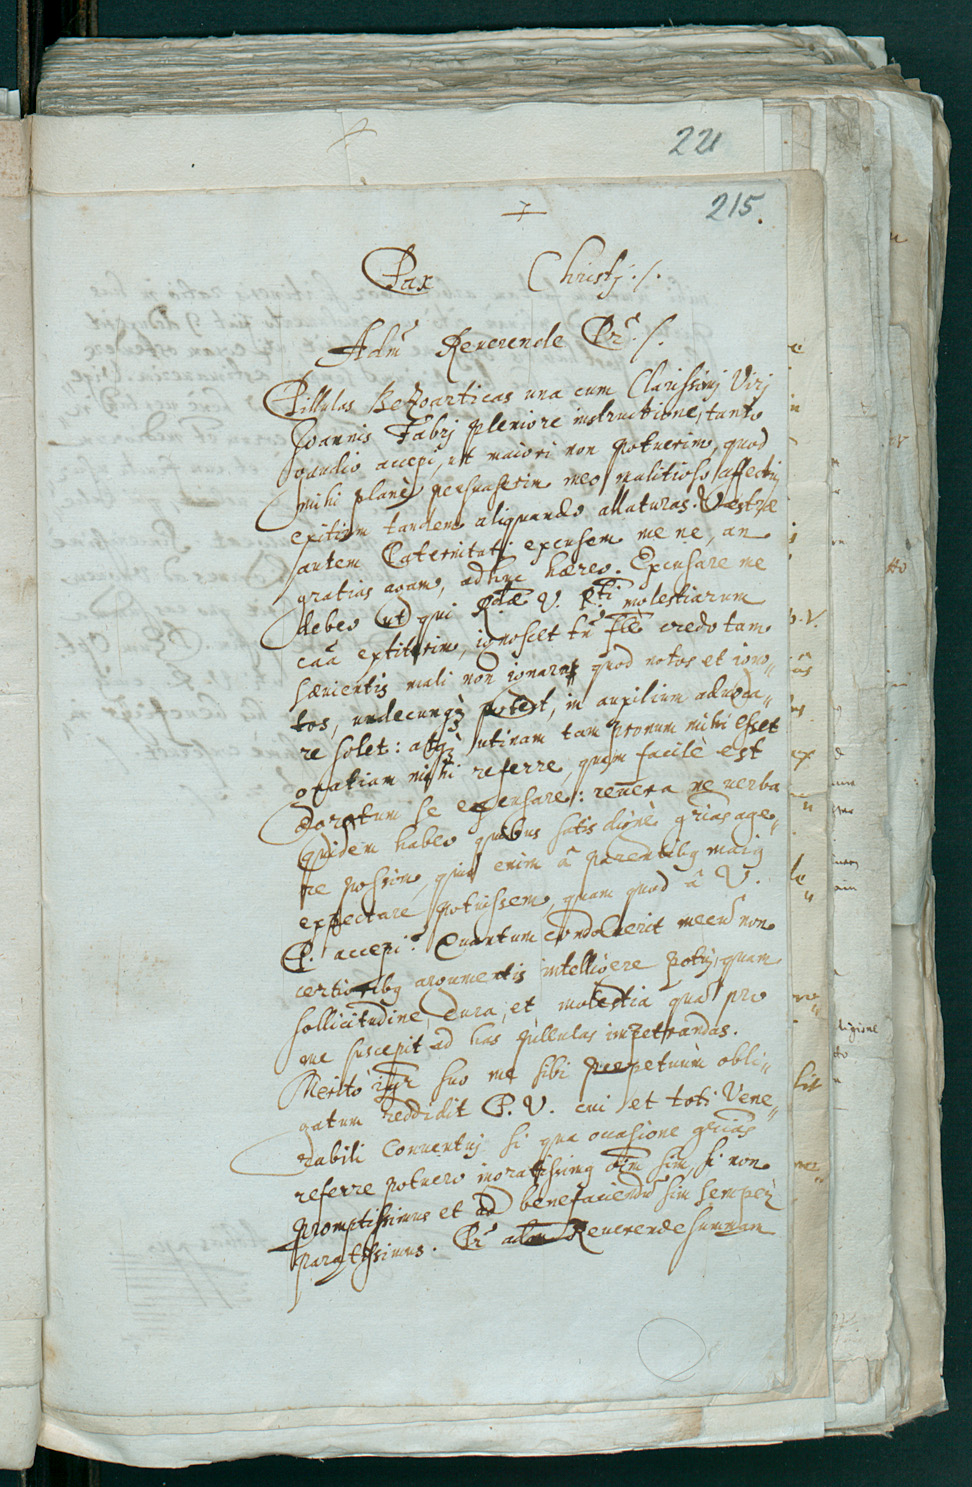 221
215.
+
Pax Christj ./.
Adm Reuerende Pr ./.
Pillulas Bezoarticas una cum Clarissimj Virj
Joannis Fabrj pleniore instructione, tanto
gaudio accepi, ut maiori non potuerim, quod
mihi planè persuaserim meo malitioso affectuj
exitium tandem aliquando allaturas. Vestræ
autem Paternitati excusem me ne, an
gratias agam, adhuc hæreo. Excusare me
debeo ut qui Rdæ V. Pti molestiarum
caã extiterim, ignoscet tñ credo tam
sæuientis mali non ignarus quod notos et igno„
tos, undecunqȝ potest, in auxilium aduoca„
re solet: atqȝ utinam tam pronum mihi esset
gratiam mihi referre, quam facilè est
se excusare: reuera ne uerba
quidem habeo quibus satis dignè grãs age„
re possim, quid enim â parentibȝ maiȝ
expectare potuissem, quam quod â V.
P. accepi? Quantum condoluerit meeũ non
certioribȝ argumentis intelligere potuj, quam
sollicitudine, cura, et molestia quã pro
me suscepit ad has pillulas impetrandas.
Meritò igr suo me sibi perpetuùm obli„
gatum reddidit P. V. cui et toti Vene„
rabili Conuentuj si qua occasione grãs
referre potuero ingratissimȝ oĩm sim, si non
promptissimus et ad benefaciendũ sim semper
paratissimus. Pr adm Reuerende summam